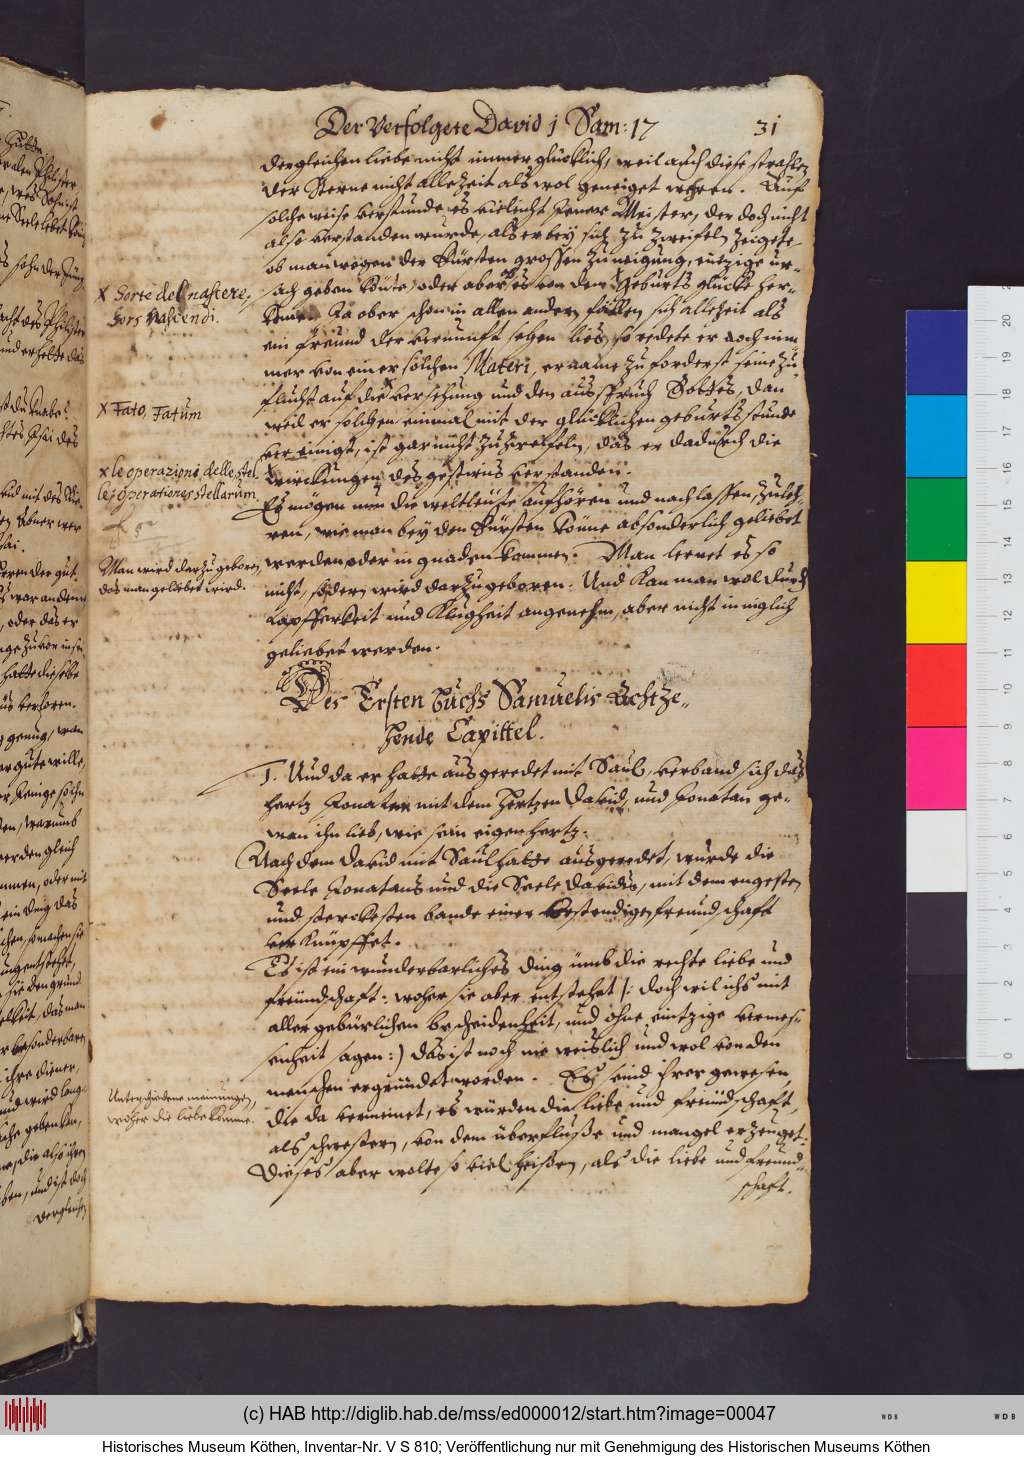 Der Verfolgete David j Sam: 17
31
dergleichen liebe nicht immer glücklich, weil auch diese strahlen
der Sterne nicht allezeit also wol geneiget wehren. Auf
solche weise verstunde es vieleicht jener Meister, der doch nicht
also verstanden wurde, als er bey sich zu zweifeln zeigete
ob man wegen der Fürsten grossen zuneigung, einzige ur-
sach geben könte, oder aber ob es von dem Geburts glücke her-
keme. Da aber schon in allen andern fällen sich allezeit als
ein freund der vernunft sehen lies, so redete er doch nim
mer von einer solchen Materi, er name zu forderst seine zu
flucht auf die versehung und den ausspruch Gottes, dan
weil er solchen einmal mit der glücklichen geburtsstunde
vereinigt, ist gar nicht zuzweifeln, das er dadurch die
wirckungen des gestirns verstanden.
Es mögen nun die weltleute aufhören und nachlassen zuleh-
ren, wie man bey den Fürsten könne absonderlich geliebet
werden oder in gnaden kommen. Man lernet es so
nicht, sondern wird darzu geboren. Und kan man wol durch
tapfferkeit und klugheit angenehm, aber nicht inniglich
geliebet werden.
x Sorte del nascere,
Sors nascendi.
x Fato, Fatum
x le operazioni delle stel
le, operationes stellarum
Man wird darzu geboren,
das man geliebet wird.
Des Ersten Buchs Samuelis Achtze-
hende Capittel.
1. Und da er hatte ausgeredet mit Saul, verband sich das
hertz Jonatan mit dem hertzen David, und Jonatan ge-
wan ihn lieb, wie sein eigen hertz.
Nach dem David mit Saul hatte ausgeredet, wurde die
Seele Jonatans und die Seele Davids, mit dem engesten
und sterckesten bande einer bestendigen freundschaft
verknüpffet.
Es ist ein wunderbarliches ding umb die rechte liebe und
freundschaft: woher sie aber entstehet /: doch wil ichs mit
aller gebürlichen bescheidenheit, und ohne eintzige vermes-
senheit sagen :) das ist noch nie weislich und wol von den
menschen ergründet worden. Es seind ihrer gewesen,
die da vermeinet, es würden die liebe und freundschaft,
als schwestern, von dem überflusse und mangel erzeuget:
Dieses aber wolte so viel heißen, als die liebe und freund-
schaft.
Unterschiedene meinungen,
woher die liebe komme.
(c) HAB http://diglib.hab.de/mss/ed000012/start.htm?image=00047
Historisches Museum Köthen, Inventar-Nr. V S 810; Veröffentlichung nur mit Genehmigung des Historischen Museums Köthen